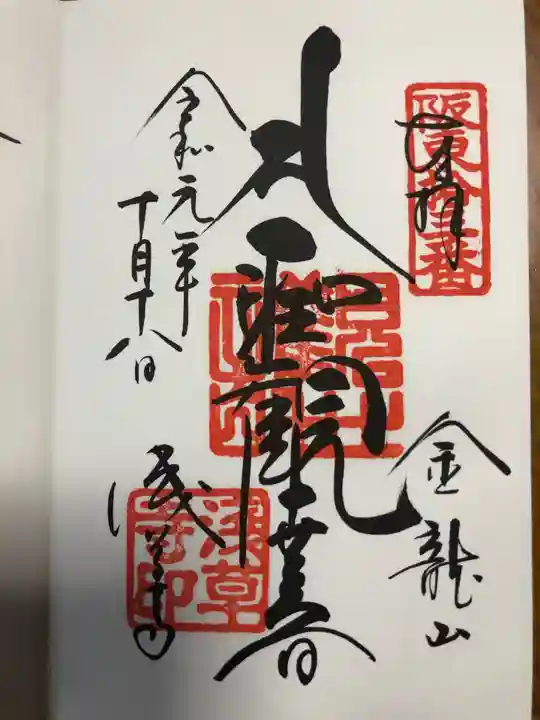 奉拝
坂東拾三番
金龍山
聖観世音
浅草寺
浅草寺印
令和元年
十月十八日